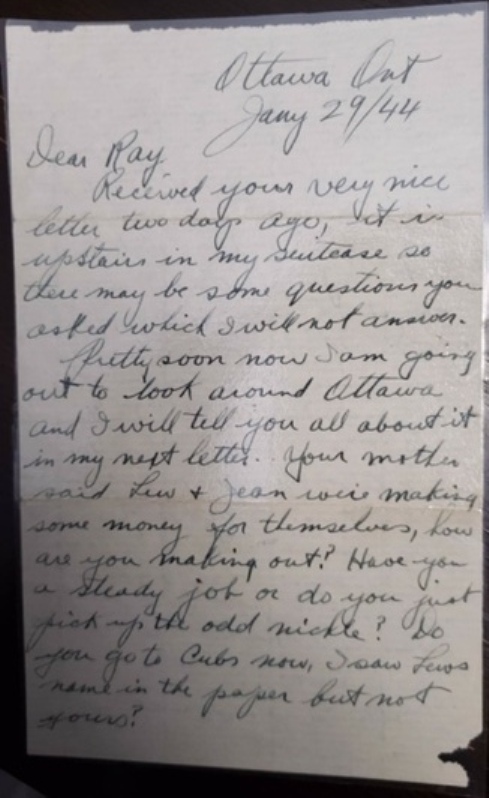 Ottawa Ont
Jany 29/44
Dear Ray
Received your very nice
letter two days ago, it is
upstairs in my suitcase so
there may be some questions you
asked which I will not answer.
Pretty soon now I am going
out to look around Ottawa
and I will tell you all about it
in my next letter. Your mother
said Lew & Jean were making
some money for themselves, how
are you making out? Have you
a steady job or do you just
pick up the odd nickle? Do
you go to Cubs now, I saw Lews
name in the paper but not
yours?